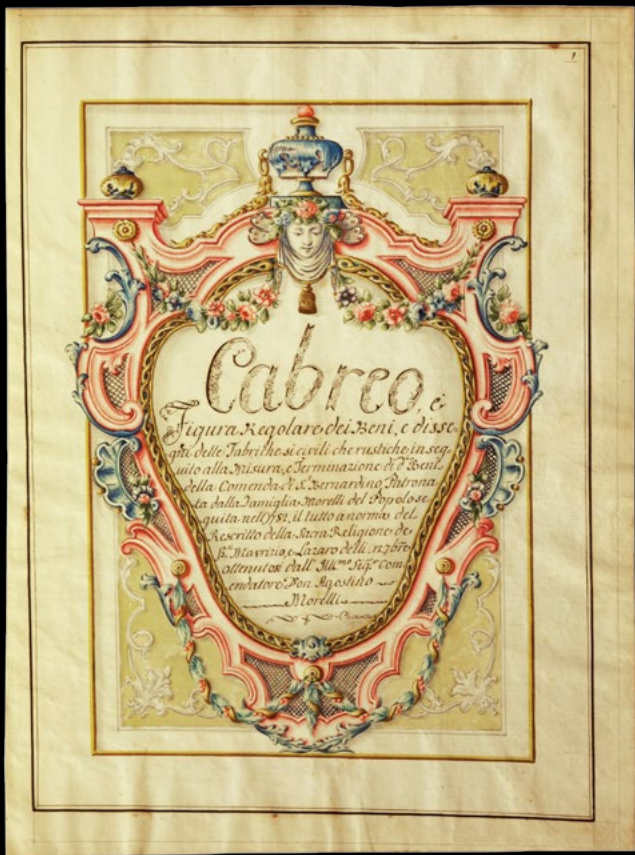 1
Cabreo, e
Figura Regolare dei Beni, e disse-
gni delle Fabriche si civili che rustiche, in seg-
uito alla Misura, e Terminazione di d.i Beni
della Comenda di S. Bernardino, Patrona-
ta dalla Famiglia Morelli del Popolo se-
guita nell' 1782, il tutto a norma del
Rescritto della Sacra Religione de
S.ti Maurizio, e Lazaro delli
ottenutosi dall' Ill.mo Sig.r Com-
endatore Don Agostino
Morelli